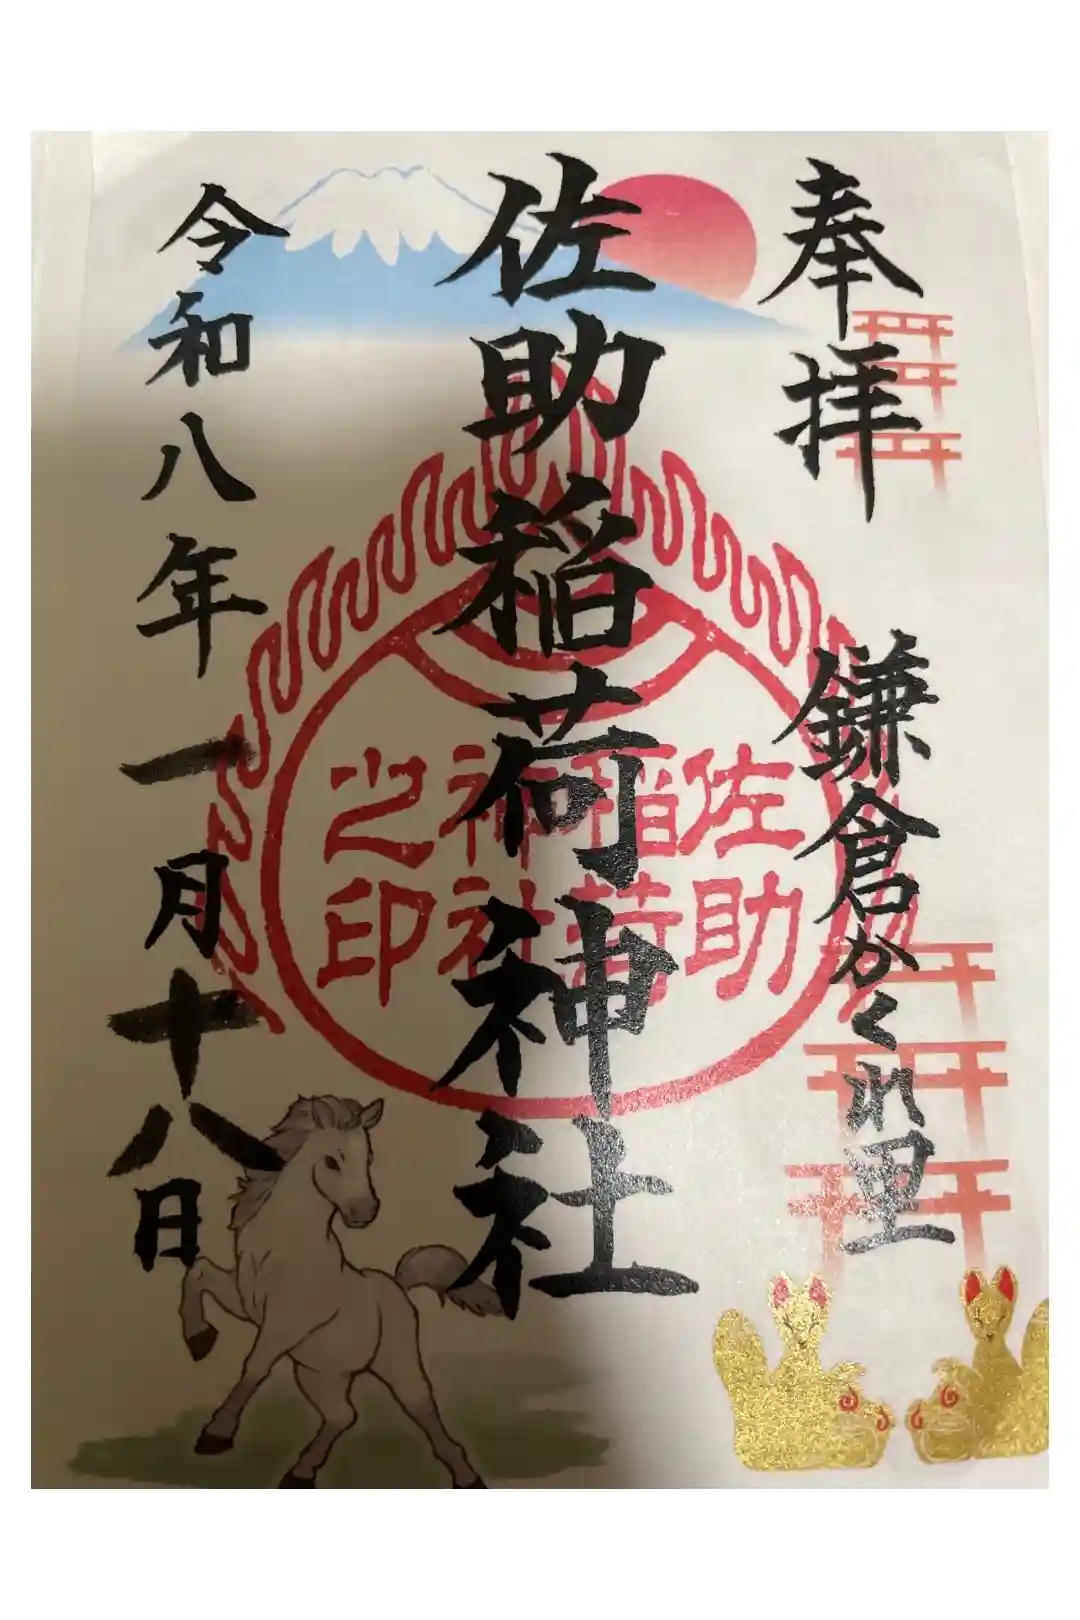 奉拝
鎌倉かくれ里
佐助稲荷神社
佐助
稲荷
神社
之印
令和八年一月十八日